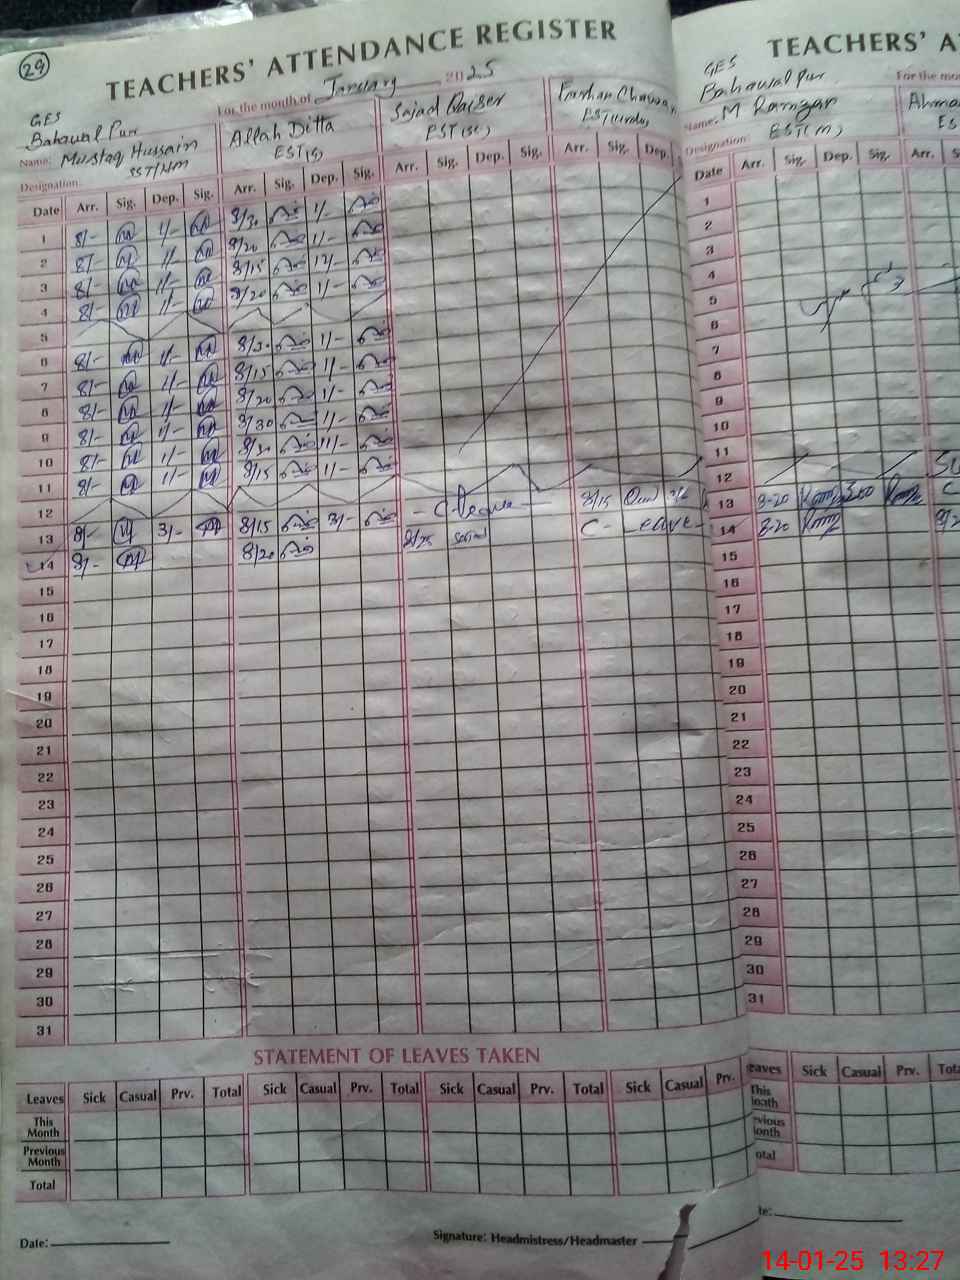 29
TEACHERS' ATTENDANCE REGISTER
For the month of January 2025
GES
Bahawal Pur
Name: Mustaq Hussain
SST/HM
Allah Ditta
EST(S)
Sajad
EST(SC)
Farhan
EST(Urdu)
Designation:
Date Arr. Sig. Dep. Sig. Arr. Sig. Dep. Sig. Arr. Sig. Dep. Sig. Arr. Sig. Dep.
1 8/- 1/- 8/30 1/-
2 8/- 1/- 8/20 1/-
3 8/- 1/- 8/15 12/-
4 8/- 1/- 8/20 1/-
5
6 8/- 1/- 8/30 1/-
7 8/- 1/- 8/15 1/-
8 8/- 1/- 8/20 1/-
9 8/- 1/- 8/30 1/-
10 8/- 11/- 8/30 11/-
11 8/- 11/- 8/15 11/-
12
13 8/- 3/- 8/15 3/- - C leave - 8/15
14 8/- 8/20 8/25 C-
15
16
17
18
19
20
21
22
23
24
25
26
27
28
29
30
31
STATEMENT OF LEAVES TAKEN
Leaves Sick Casual Prv. Total Sick Casual Prv. Total Sick Casual Prv. Total Sick Casual Prv.
This Month
Previous Month
Total
Date:
Signature: Headmistress/Headmaster
TEACHERS' A
GES
Bahawalpur
For the mo
Name: M Ramzan
EST(M)
Ahma
ES
Designation:
Date Arr. Sig. Dep. Sig. Arr. S
1
2
3
4
5
6
7
8
9
10
11
12 SU
13 8-20 C
14 8-20 8/2
15
16
17
18
19
20
21
22
23
24
25
26
27
28
29
30
31
eaves Sick Casual Prv. Tota
This
onth
vious
onth
otal
te:
14-01-25 13:27